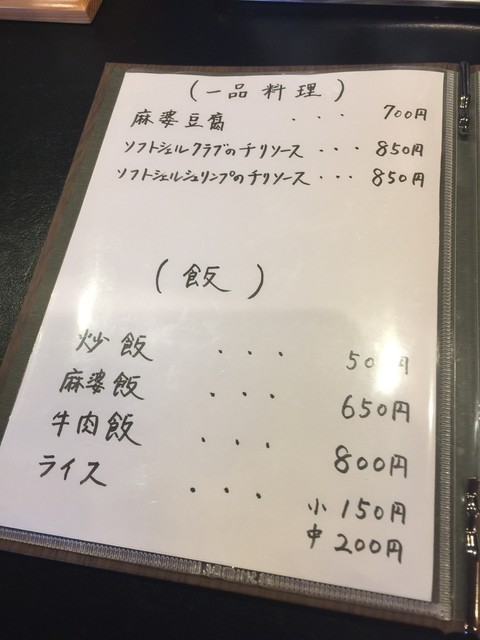 (一品料理)
麻婆豆腐 ・・・ 700円
ソフトシェルクラブのチリソース ・・・ 850円
ソフトシェルシュリンプのチリソース ・・・ 850円
(飯)
炒飯 ・・・ 500円
麻婆飯 ・・・ 650円
牛肉飯 ・・・ 800円
ライス ・・・ 小 150円
中 200円